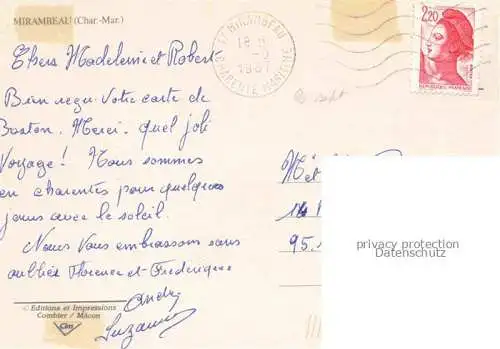 MIRAMBEAU (Char.-Mar.)
Chers Madeleine et Robert
Bien reçu votre carte de
Boston. Merci. quel joli
Voyage! Nous sommes
en charentes pour quelques
jours avec le soleil.
Nous Vous embrassons sans
oublier Florence et Frédérique
André
Suzanne
© Editions et Impressions
Combier / Mâcon
Cim
17 MIRAMBEAU
18 H
CHARENTE MARITIME
2,20
REPUBLIQUE FRANÇAISE
14
95.
privacy protection
Datenschutz